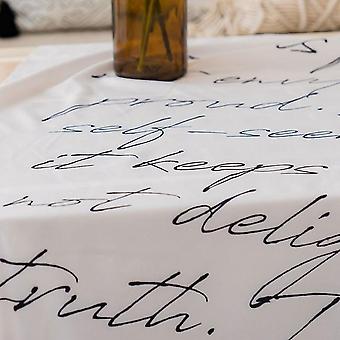 proud.
self-see
it keeps
not delig
truth.